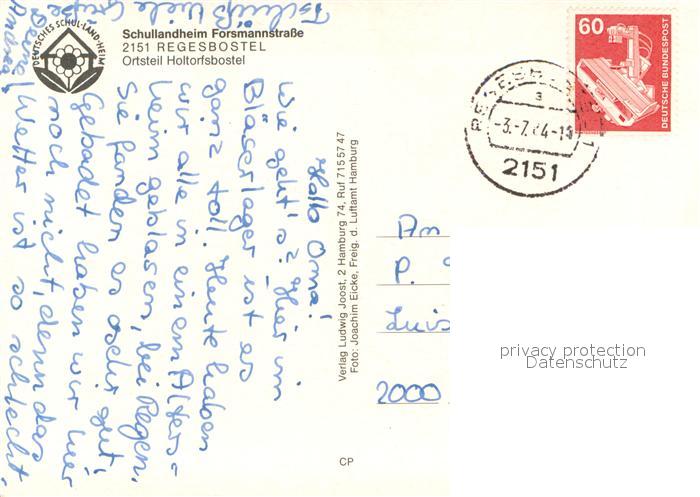 DEUTSCHES SCHUL-LAND-HEIM
Schullandheim Forsmannstraße
2151 REGESBOSTEL
Ortsteil Holtorfsbostel
Hallo Oma!
Wie geht's? Hier im
Bläserlager ist es
ganz toll. Heute haben
wir alle in einem Alters-
heim geblasen, bei Regen.
Sie fanden es sehr gut.
Gebadet haben wir hier
noch nicht, denn das
Wetter ist so schlecht.
Tschüß Viele Grüße
Deine
Andrea
Verlag Ludwig Joost, 2 Hamburg 74, Ruf 715 57 47
Foto: Joachim Eicke, Freig. d. Luftamt Hamburg
CP
60
DEUTSCHE BUNDESPOST
a
-3.-7.
2151
An
P.
Luis
2000
privacy protection
Datenschutz